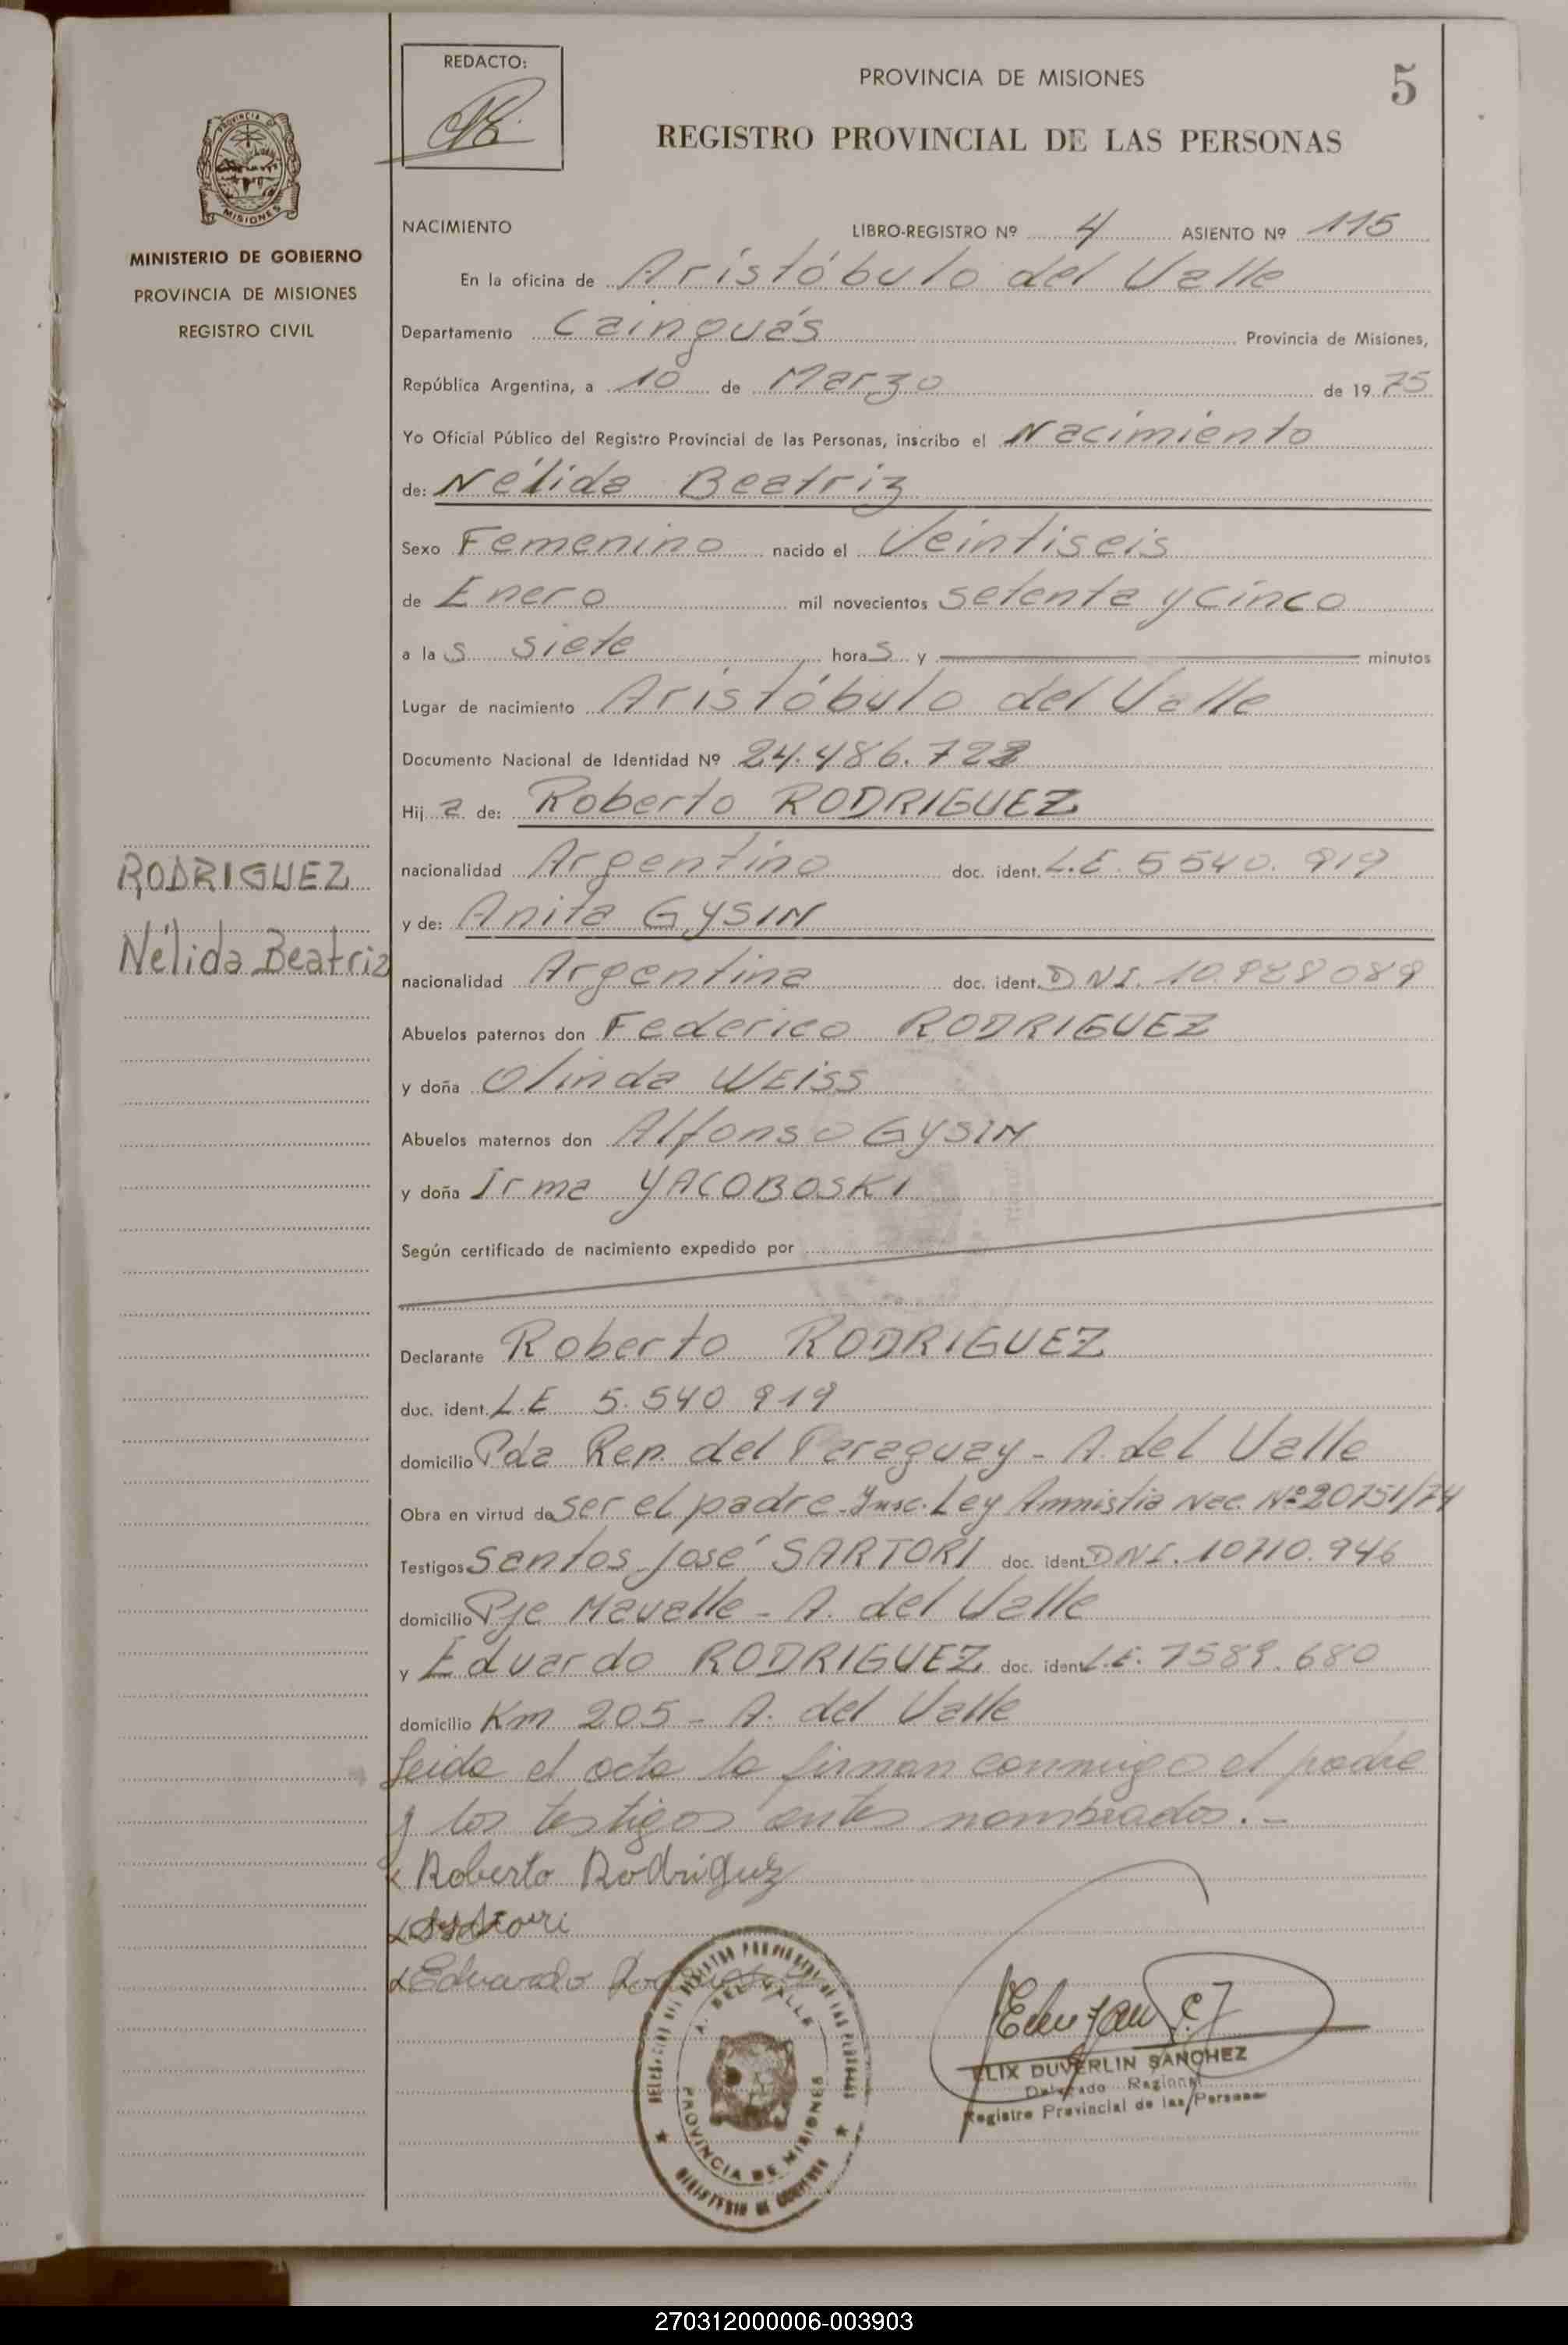 REDACTO:
PROVINCIA DE MISIONES
5
REGISTRO PROVINCIAL DE LAS PERSONAS
PROVINCIA DE
MISIONES
MINISTERIO DE GOBIERNO
PROVINCIA DE MISIONES
REGISTRO CIVIL
NACIMIENTO LIBRO-REGISTRO Nº 4 ASIENTO Nº 115
En la oficina de Aristóbulo del Valle
Departamento Cainguás Provincia de Misiones,
República Argentina, a 10 de Marzo de 19 75
Yo Oficial Público del Registro Provincial de las Personas, inscribo el Nacimiento
de: Nélida Beatriz
Sexo Femenino nacido el Veintiseis
de Enero mil novecientos setenta y cinco
a las siete horas y minutos
Lugar de nacimiento Aristóbulo del Valle
Documento Nacional de Identidad Nº 24.486.722
Hija de: Roberto RODRIGUEZ
nacionalidad Argentino doc. ident. L.E. 5540.919
y de: Anita GYSIN
nacionalidad Argentina doc. ident. DNI. 10.988089
RODRIGUEZ
Nélida Beatriz
Abuelos paternos don Federico RODRIGUEZ
y doña Olinda WEISS
Abuelos maternos don Alfonso GYSIN
y doña Irma YACOBOSKI
Según certificado de nacimiento expedido por
Declarante Roberto RODRIGUEZ
doc. ident. L.E 5.540 919
domicilio Pda Rep. del Paraguay - A. del Valle
Obra en virtud de ser el padre. Insc. Ley Amnistia Nac. Nº 20751/74
Testigos Santos José SARTORI doc. ident DNI. 10710.946
domicilio Pje Mavalle - A. del Valle
y Eduardo RODRIGUEZ doc. ident L.E. 7589.680
domicilio Km 205 - A. del Valle
Leida el acta la firman conmigo el padre
y los testigos antes nombrados.-
Roberto Rodriguez
Eduardo
DELEGACION DEL REGISTRO PROVINCIAL DE LAS PERSONAS
A. DEL VALLE
PROVINCIA DE MISIONES
MINISTERIO DE GOBIERNO
ELIX DUVERLIN SANCHEZ
Delegado Regional
Registro Provincial de las Personas
270312000006-003903